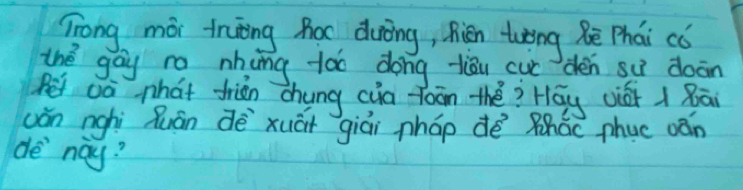 Trong môi trường học đường, hiện tượng bè phái có
thể gây ra những tác động tiêu cực đến sự đoàn
kết và phát triển chung của toàn thể? Hãy viết 1 bài
văn nghị luận đề xuất giải pháp để khắc phục vấn
đề này?